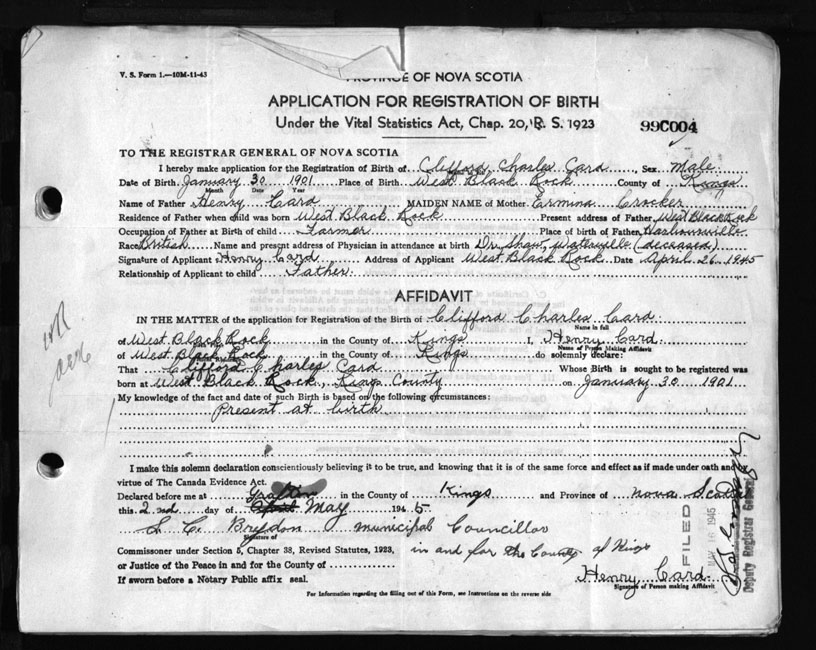 V. S. Form 1.—10M-11-43
PROVINCE OF NOVA SCOTIA
APPLICATION FOR REGISTRATION OF BIRTH
Under the Vital Statistics Act, Chap. 20, R. S. 1923
990004
TO THE REGISTRAR GENERAL OF NOVA SCOTIA
I hereby make application for the Registration of Birth of Clifford Charles Card, Sex Male
Date of Birth January 30 1901 Place of Birth West Black Rock County of Kings
Month Date Year
Name of Father Henry Card MAIDEN NAME of Mother Ermina Crocker
Residence of Father when child was born West Black Rock Present address of Father, West Black Rock
Occupation of Father at Birth of child Farmer Place of birth of Father, Harbourville
Race British Name and present address of Physician in attendance at birth Dr. Shaw, Waterville (deceased)
Signature of Applicant Henry Card Address of Applicant West Black Rock Date April 26 1945
Relationship of Applicant to child Father
AFFIDAVIT
IN THE MATTER of the application for Registration of the Birth of Clifford Charles Card
Name in full
of West Black Rock in the County of Kings I, Henry Card
Name of Person Making Affidavit
of West Black Rock in the County of Kings do solemnly declare:
That Clifford Charles Card Whose Birth is sought to be registered was
born at West Black Rock, Kings County on January 30 1901
My knowledge of the fact and date of such Birth is based on the following circumstances:
Present at birth
I make this solemn declaration conscientiously believing it to be true, and knowing that it is of the same force and effect as if made under oath and by
virtue of The Canada Evidence Act.
Declared before me at Grafton in the County of Kings and Province of Nova Scotia
this 2nd day of April May 1945
Municipal Councillor
Signature of
Commissioner under Section 5, Chapter 38, Revised Statutes, 1923, in and for the County of Kings
or Justice of the Peace in and for the County of
If sworn before a Notary Public affix seal.
Henry Card
Signature of Person making Affidavit
For Information regarding the filling out of this Form, see Instructions on the reverse side
FILED
MAY 16 1945
Deputy Registrar General